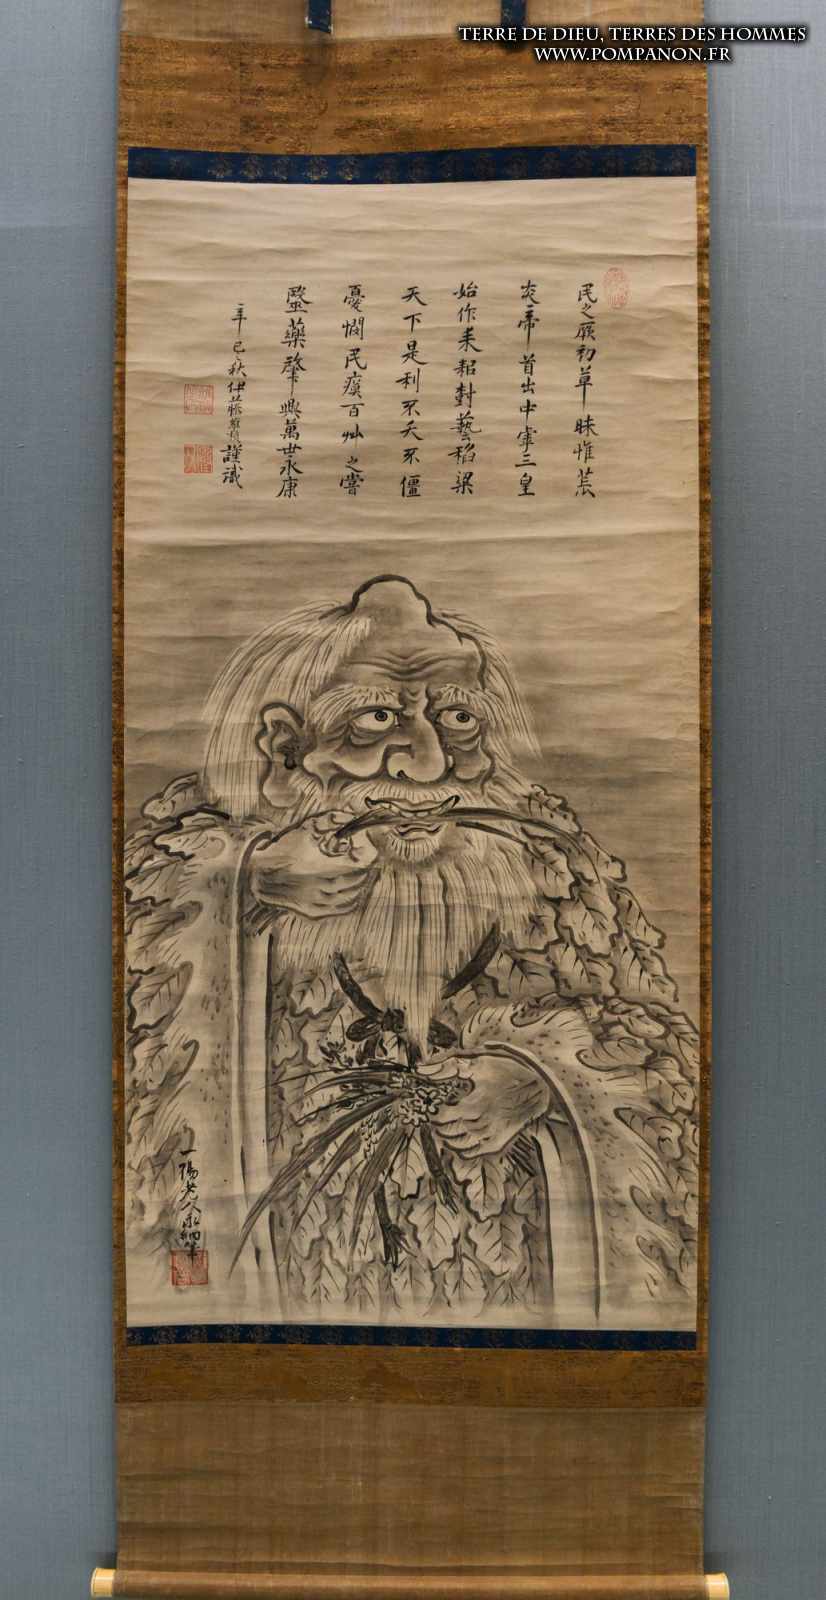 TERRE DE DIEU, TERRES DES HOMMES
WWW.POMPANON.FR
民之厥初草昧惟荒
炎帝首出中宰三皇
始作耒耜對藝稻粱
天下是利不夭不僵
憂憫民瘼百艸之嘗
毉藥肇興萬世永康
辛巳秋伊藤謹識
一陽老人筆